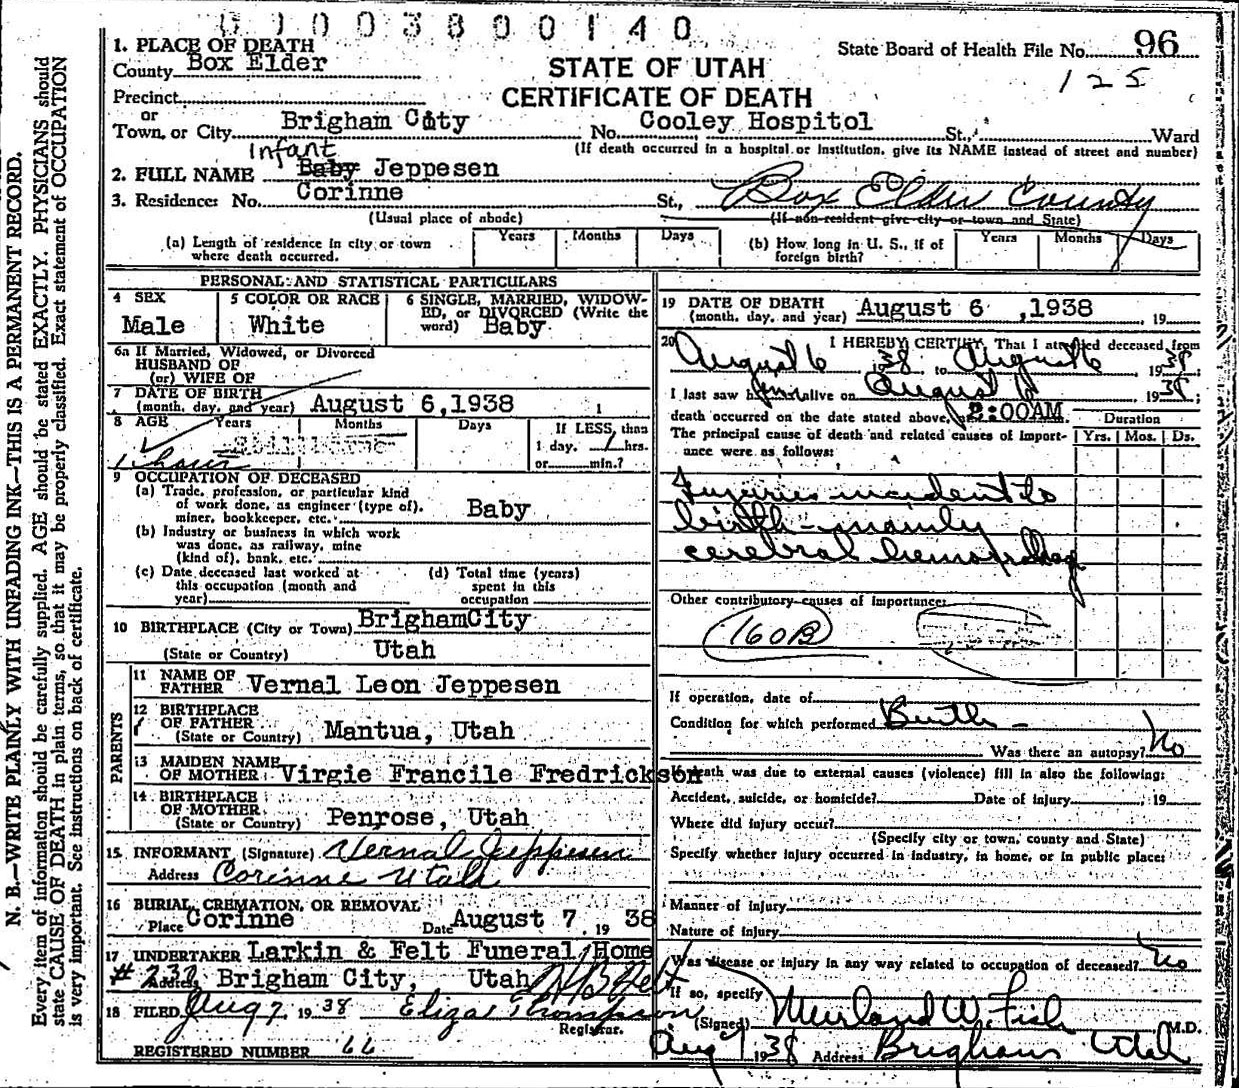 0 1 0 0 3 8 0 0 1 4 0
1. PLACE OF DEATH
County Box Elder
State Board of Health File No. 96
125
STATE OF UTAH
CERTIFICATE OF DEATH
Precinct
or
Town, or City Brigham City No. Cooley Hospitol St., Ward
(If death occurred in a hospital or institution, give its NAME instead of street and number)
Infant
2. FULL NAME Baby Jeppesen
3. Residence: No. Corinne St., Box Elder County
(Usual place of abode) (If non-resident give city or town and State)
(a) Length of residence in city or town where death occurred. Years Months Days
(b) How long in U. S., if of foreign birth? Years Months Days
PERSONAL AND STATISTICAL PARTICULARS
4 SEX Male
5 COLOR OR RACE White
6 SINGLE, MARRIED, WIDOWED, or DIVORCED (Write the word) Baby
6a If Married, Widowed, or Divorced
HUSBAND OF
(or) WIFE OF
7 DATE OF BIRTH
(month, day, and year) August 6,1938
8 AGE Years Months Days
1 hour
If LESS, than
1 day, 1 hrs.
or min.?
9 OCCUPATION OF DECEASED
(a) Trade, profession, or particular kind
of work done, as engineer (type of),
miner, bookkeeper, etc. Baby
(b) Industry or business in which work
was done, as railway, mine
(kind of), bank, etc.
(c) Date deceased last worked at
this occupation (month and
year)
(d) Total time (years)
spent in this
occupation
10 BIRTHPLACE (City or Town) BrighamCity
(State or Country) Utah
PARENTS
11 NAME OF
FATHER Vernal Leon Jeppesen
12 BIRTHPLACE
OF FATHER
(State or Country) Mantua, Utah
13 MAIDEN NAME
OF MOTHER Virgie Francile Fredrickson
14 BIRTHPLACE
OF MOTHER
(State or Country) Penrose, Utah
15 INFORMANT (Signature) Vernal Jeppesen
Address Corinne Utah
16 BURIAL, CREMATION, OR REMOVAL
Place Corinne Date August 7, 19 38
17 UNDERTAKER Larkin & Felt Funeral Home
# 232 Address Brigham City, Utah
18 FILED Aug 7, 19 38 Eliza Thompson
Registrar.
REGISTERED NUMBER 66
19 DATE OF DEATH
(month, day, and year) August 6 ,1938 , 19
20 I HEREBY CERTIFY, That I attended deceased from
August 6 1938 to August 6, 1938;
I last saw him alive on August 6, 1938;
death occurred on the date stated above, at 2:00AM.
Duration
The principal cause of death and related causes of importance were as follows: Yrs. Mos. Ds.
Injuries incident to
birth - mainly
cerebral hemorrhage
Other contributory causes of importance:
160B
If operation, date of
Condition for which performed Birth -
Was there an autopsy? No
If death was due to external causes (violence) fill in also the following:
Accident, suicide, or homicide? Date of injury , 19
Where did injury occur?
(Specify city or town, county and State)
Specify whether injury occurred in industry, in home, or in public place:
Manner of injury
Nature of injury
Was disease or injury in any way related to occupation of deceased? No
If so, specify
(Signed) Meirland W. Fish M.D.
Aug 7 1938 Address Brigham Utah
N. B.—WRITE PLAINLY WITH UNFADING INK—THIS IS A PERMANENT RECORD.
Every item of information should be carefully supplied. AGE should be stated EXACTLY. PHYSICIANS should
state CAUSE OF DEATH in plain terms, so that it may be properly classified. Exact statement of OCCUPATION
is very important. See instructions on back of certificate.